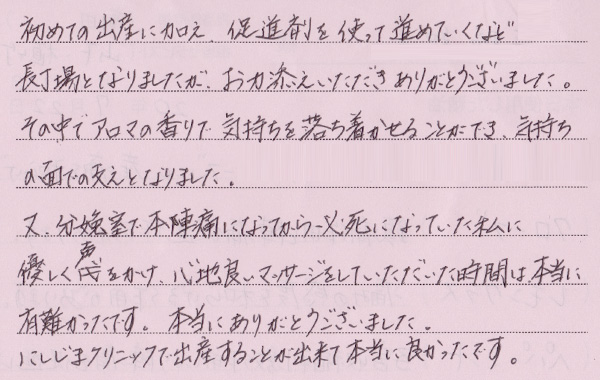 初めての出産に加え、促進剤を使って進めていくなど
長丁場となりましたが、お力添えいただきありがとうございました。
その中でアロマの香りで気持ちを落ち着かせることができ、気持ち
の面での支えとなりました。
又、分娩室で本陣痛になってから必死になっていた私に
優しく声をかけ、心地良いマッサージをしていただいた時間は本当に
有難かったです。本当にありがとうございました。
にしじまクリニックで出産することが出来て本当に良かったです。